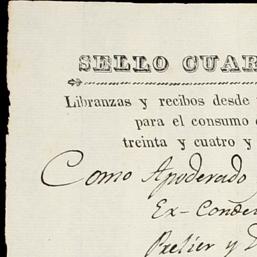 SELLO CUAR
Libranzas y recibos desde
para el consumo
treinta y cuatro y
Como Apoderado
Ex-Conde
Prelier y